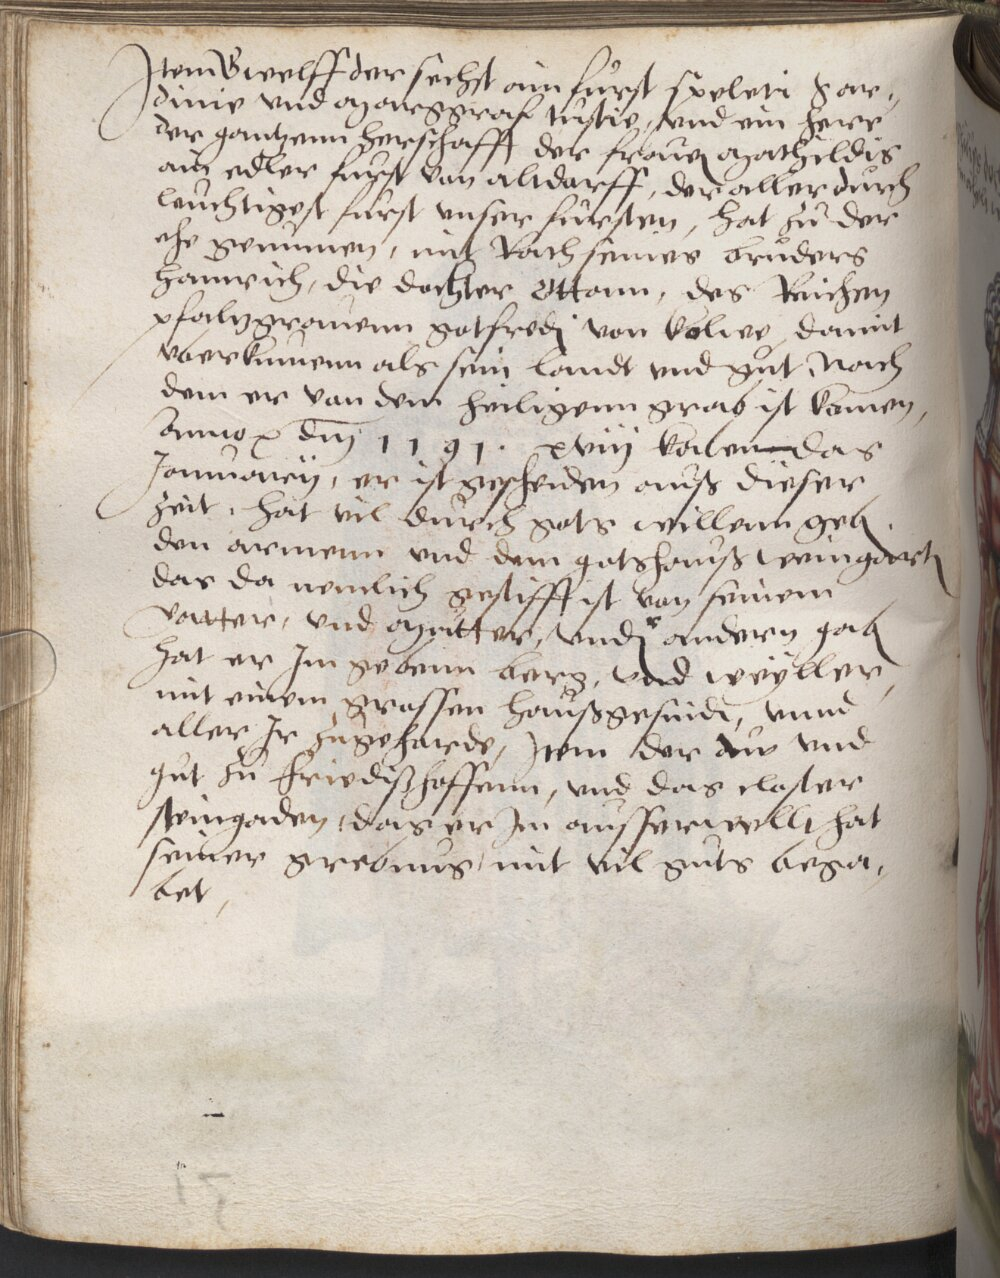 Item Gwelff der sechst ain fürst speleti Sar,
dinie vnd marggraf tustie, vnd ein herr
der gantzenn herschafft der frauen mathildis
ain edler furst van altdarff, der aller durch
leuchtigest fürst vnser fürsten, hat zu der
ehe genummen, mit Rath seines brüders
hainrich, die dochter Ottonn, des Reichen
pfaltzgrauenn gotfredi von kolwe, damit
vberkumenn als sein landt vnd gut, Nach
dem er van dem heiligenn grab ist kamen,
Anno dni 1191. xviij kalendas
Januarij, er ist gescheiden auß dieser
zeit, hat vil durch gots willenn geb
den armenn vnd dem gotshauß weingart
das da nemlich gestifft ist van seinem
vatter, vnd mutter, vnd andern gab
hat er Im gebenn berg, vnd weyller,
mit einem grossen haußgesindt, vnnd
aller Ir zugeharde, Item der aw vnd
gut zu friedißhoffenn, vnd das claster
steingaden, das er Im ausserwellt hat
seiner grebnus, mit vil guts bega,
bet,
31